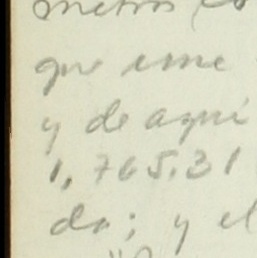 metros
que une
y de aquí
1,765.31
da; y el